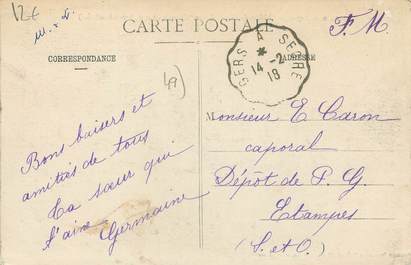 12€
M. & L.
CARTE POSTALE
F. M.
CORRESPONDANCE
ADRESSE
GERS A SEGRE
*
14 -2
18
49
Bons baisers et
amitiés de tous
Ta sœur qui
t'aime
Germaine
Monsieur E Caron
caporal
Dépôt de P. G.
Etampes
(S. et O.)